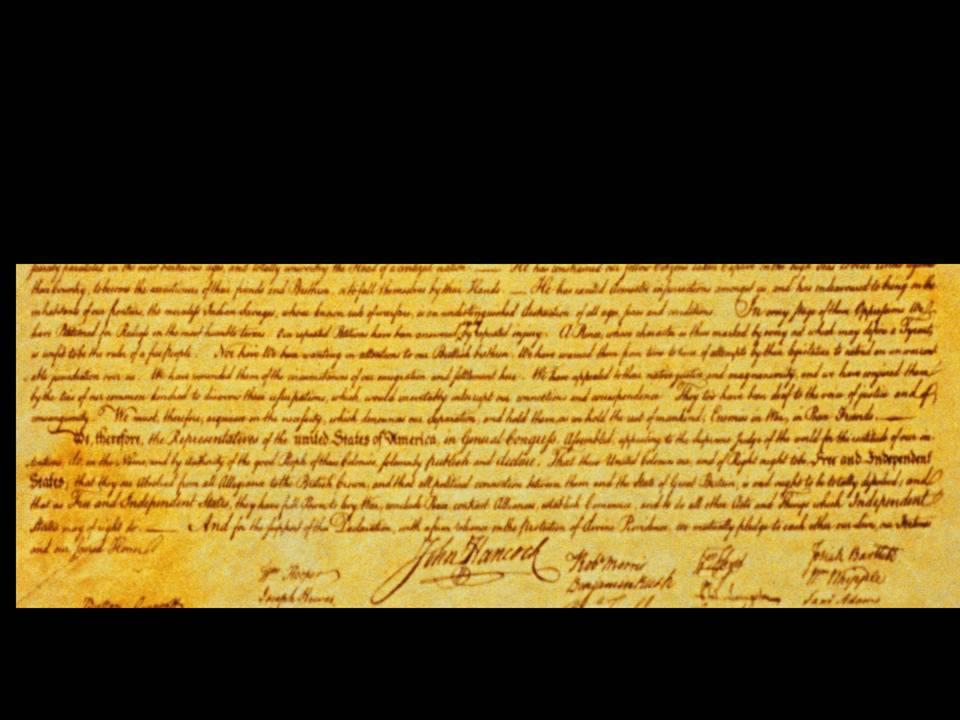 purely paralleled in the most barbarous ages, and totally unworthy the Head of a civilized nation. He has constrained our fellow Citizens taken Captive on the high Seas to bear Arms against
their Country, to become the executioners of their friends and Brethren, or to fall themselves by their Hands. He has excited domestic insurrections amongst us, and has endeavoured to bring on the
inhabitants of our frontiers, the merciless Indian Savages, whose known rule of warfare, is an undistinguished destruction of all ages, sexes and conditions. In every stage of these Oppressions We
have Petitioned for Redress in the most humble terms: Our repeated Petitions have been answered by repeated injury. A Prince, whose character is thus marked by every act which may define a Tyrant,
is unfit to be the ruler of a free people. Nor have We been wanting in attentions to our Brittish brethren. We have warned them from time to time of attempts by their legislature to extend an unwarrant-
able jurisdiction over us. We have reminded them of the circumstances of our emigration and settlement here. We have appealed to their native justice and magnanimity, and we have conjured them
by the ties of our common kindred to disavow these usurpations, which, would inevitably interrupt our connections and correspondence. They too have been deaf to the voice of justice and of
consanguinity. We must, therefore, acquiesce in the necessity, which denounces our Separation, and hold them, as we hold the rest of mankind, Enemies in War, in Peace Friends.
We, therefore, the Representatives of the united States of America, in General Congress, Assembled, appealing to the Supreme Judge of the world for the rectitude of our in-
tentions, do, in the Name, and by authority of the good People of these Colonies, solemnly publish and declare, That these United Colonies are, and of Right ought to be Free and Independent
States; that they are Absolved from all Allegiance to the British Crown, and that all political connection between them and the State of Great Britain, is and ought to be totally dissolved; and
that as Free and Independent States, they have full Power to levy War, conclude Peace, contract Alliances, establish Commerce, and to do all other Acts and Things which Independent
States may of right do. And for the support of this Declaration, with a firm reliance on the Protection of divine Providence, we mutually pledge to each other our Lives, our Fortunes
and our sacred Honor.
John Hancock
Wm Hooper
Joseph Hewes
Button Gwinnett
Robt Morris
Benjamin Rush
Wm Floyd
Phil. Livingston
Josiah Bartlett
Wm Whipple
Saml Adams